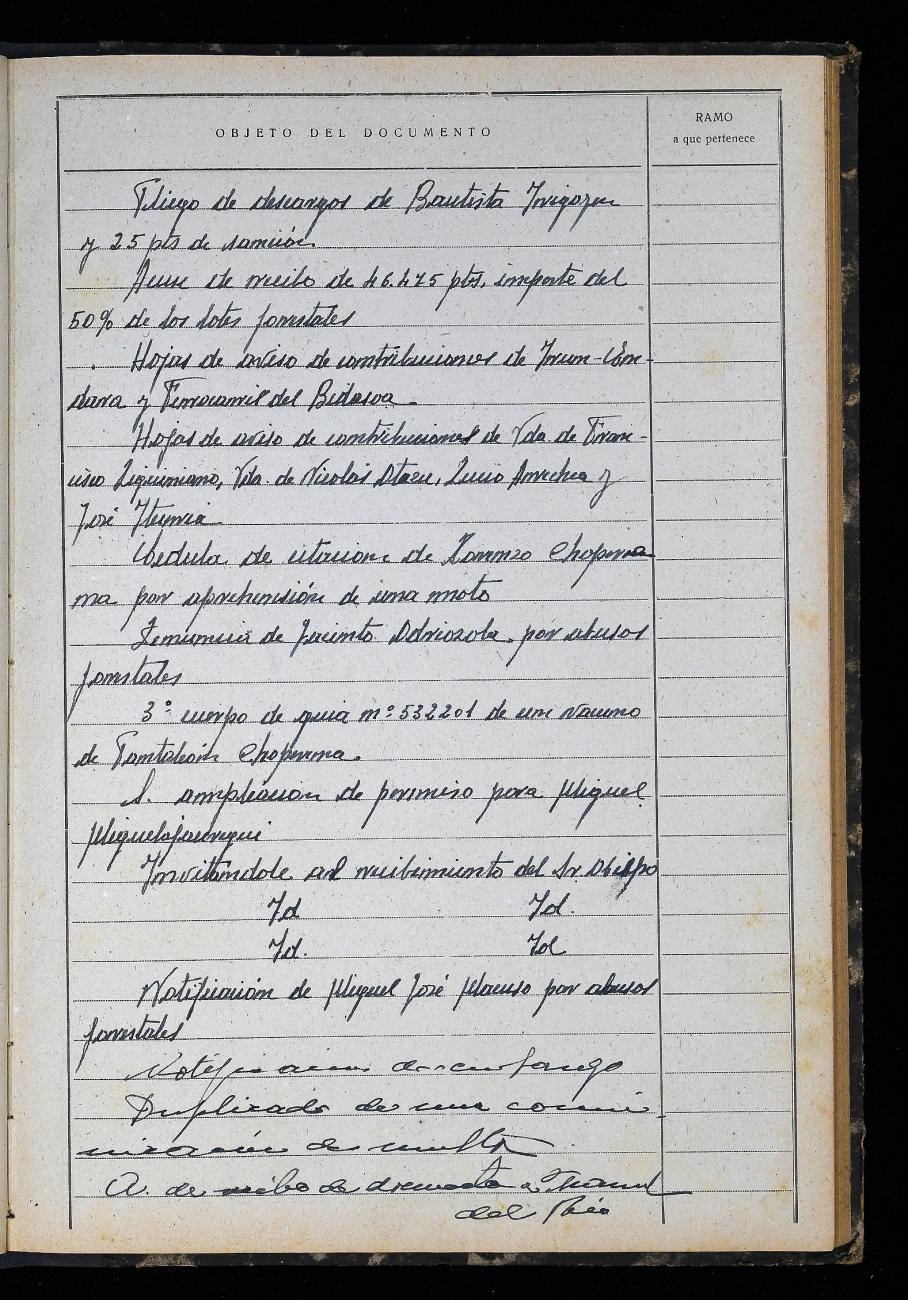 OBJETO DEL DOCUMENTO
RAMO
a que pertenece
Pliego de descargos de Bautista Irigoyen
y 25 pts de sanción
Acuse de recibo de 46.475 pts. importe del
50% de los lotes forestales
Hojas de aviso de contribuciones de Irun-En-
dara y Ferrocarril del Bidasoa
Hojas de aviso de contribuciones de Vda. de Fran-
cisco Vda. de Nicolás Otazu, Lucio Arrechea y
José Iturria
Cedula de citacion de Lorenzo Choperena
na por aprehensión de una moto
Denuncia de Jacinto Odriozola por abusos
forestales
3º cuerpo de guia nº 532201 de un vacuno
de Pantaleón Choperena.
S. ampliacion de permiso para Miguel
Miguelajauregui
Invitandole al recibimiento del Sr. Obispo
Id Id.
Id. Id
Notificación de Miguel José por abusos
forestales
Notificacion
Duplicado de una comu
nicación de multa
A. de recibo de a
del Rio